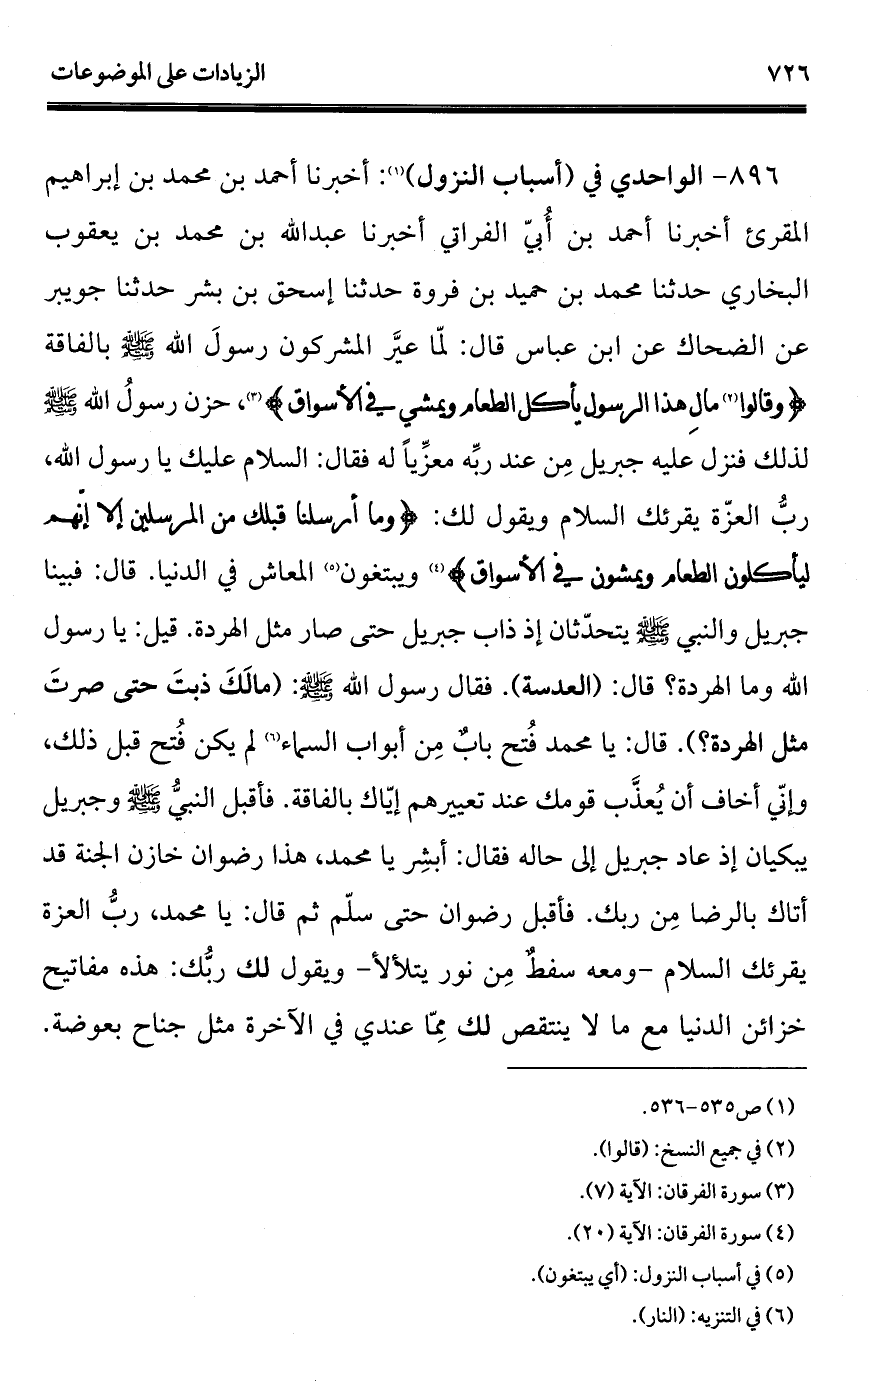 ٧٢٦ الزيادات على الموضوعات
٨٩٦- الواحدي في (أسباب النزول)(١): أخبرنا أحمد بن محمد بن إبراهيم
المقرئ أخبرنا أحمد بن أُبيّ الفراتي أخبرنا عبدالله بن محمد بن يعقوب
البخاري حدثنا محمد بن حميد بن فروة حدثنا إسحق بن بشر حدثنا جويبر
عن الضحاك عن ابن عباس قال: لمّا عيَّر المشركون رسولَ الله ﷺ بالفاقة
﴿وقالوا(٢) مالِ هذا الرسول يأكل الطعام ويمشي في الأسواق﴾(٣)، حزن رسولُ الله ﷺ
لذلك فنزل عليه جبريل مِن عند ربِّه معزِّياً له فقال: السلام عليك يا رسول الله،
ربُّ العزّة يقرئك السلام ويقول لك: ﴿وما أرسلنا قبلك من المرسلين إلا إنّهم
ليأكلون الطعام ويمشون في الأسواق﴾(٤) ويبتغون(٥) المعاش في الدنيا. قال: فبينا
جبريل والنبي ﷺ يتحدّثان إذ ذاب جبريل حتى صار مثل الهردة. قيل: يا رسول
الله وما الهردة؟ قال: (العدسة). فقال رسول الله ﷺ: (مالَكَ ذبتَ حتى صرتَ
مثل الهردة؟). قال: يا محمد فُتح بابٌ مِن أبواب السماء(٦) لم يكن فُتح قبل ذلك،
وإنّي أخاف أن يُعذَّب قومك عند تعييرهم إيّاك بالفاقة. فأقبل النبيُّ ﷺ وجبريل
يبكيان إذ عاد جبريل إلى حاله فقال: أبشِر يا محمد، هذا رضوان خازن الجنة قد
أتاك بالرضا مِن ربك. فأقبل رضوان حتى سلّم ثم قال: يا محمد، ربُّ العزة
يقرئك السلام -ومعه سفطٌ مِن نور يتلألأ- ويقول لك ربُّك: هذه مفاتيح
خزائن الدنيا مع ما لا ينتقص لك مِمّا عندي في الآخرة مثل جناح بعوضة.
(١) ص٥٣٥-٥٣٦.
(٢) في جميع النسخ: (قالوا).
(٣) سورة الفرقان: الآية (٧).
(٤) سورة الفرقان: الآية (٢٠).
(٥) في أسباب النزول: (أي يبتغون).
(٦) في التنزيه: (النار).